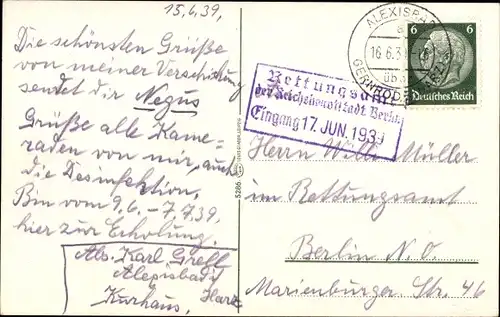 15.6.39.
Die schönsten Grüße
von meiner Verschickung
sendet dir Negus
Grüße alle Kame-
raden von mir, auch
die Desinfektion.
Bin vom 9.6. - 7.7.39.
hier zur Erholung.
Abs. Karl Grell
Alexisbad
Kurhaus, Harz
5286
ALEXISBAD
16.6.3
über
GERNRODE
6 6
Deutsches Reich
Rettungsamt
der Reichshauptstadt Berlin
Eingang 17. JUN. 193
Herrn Willi Müller
im Rettungsamt
Berlin N.O.
Marienburger Str. 46